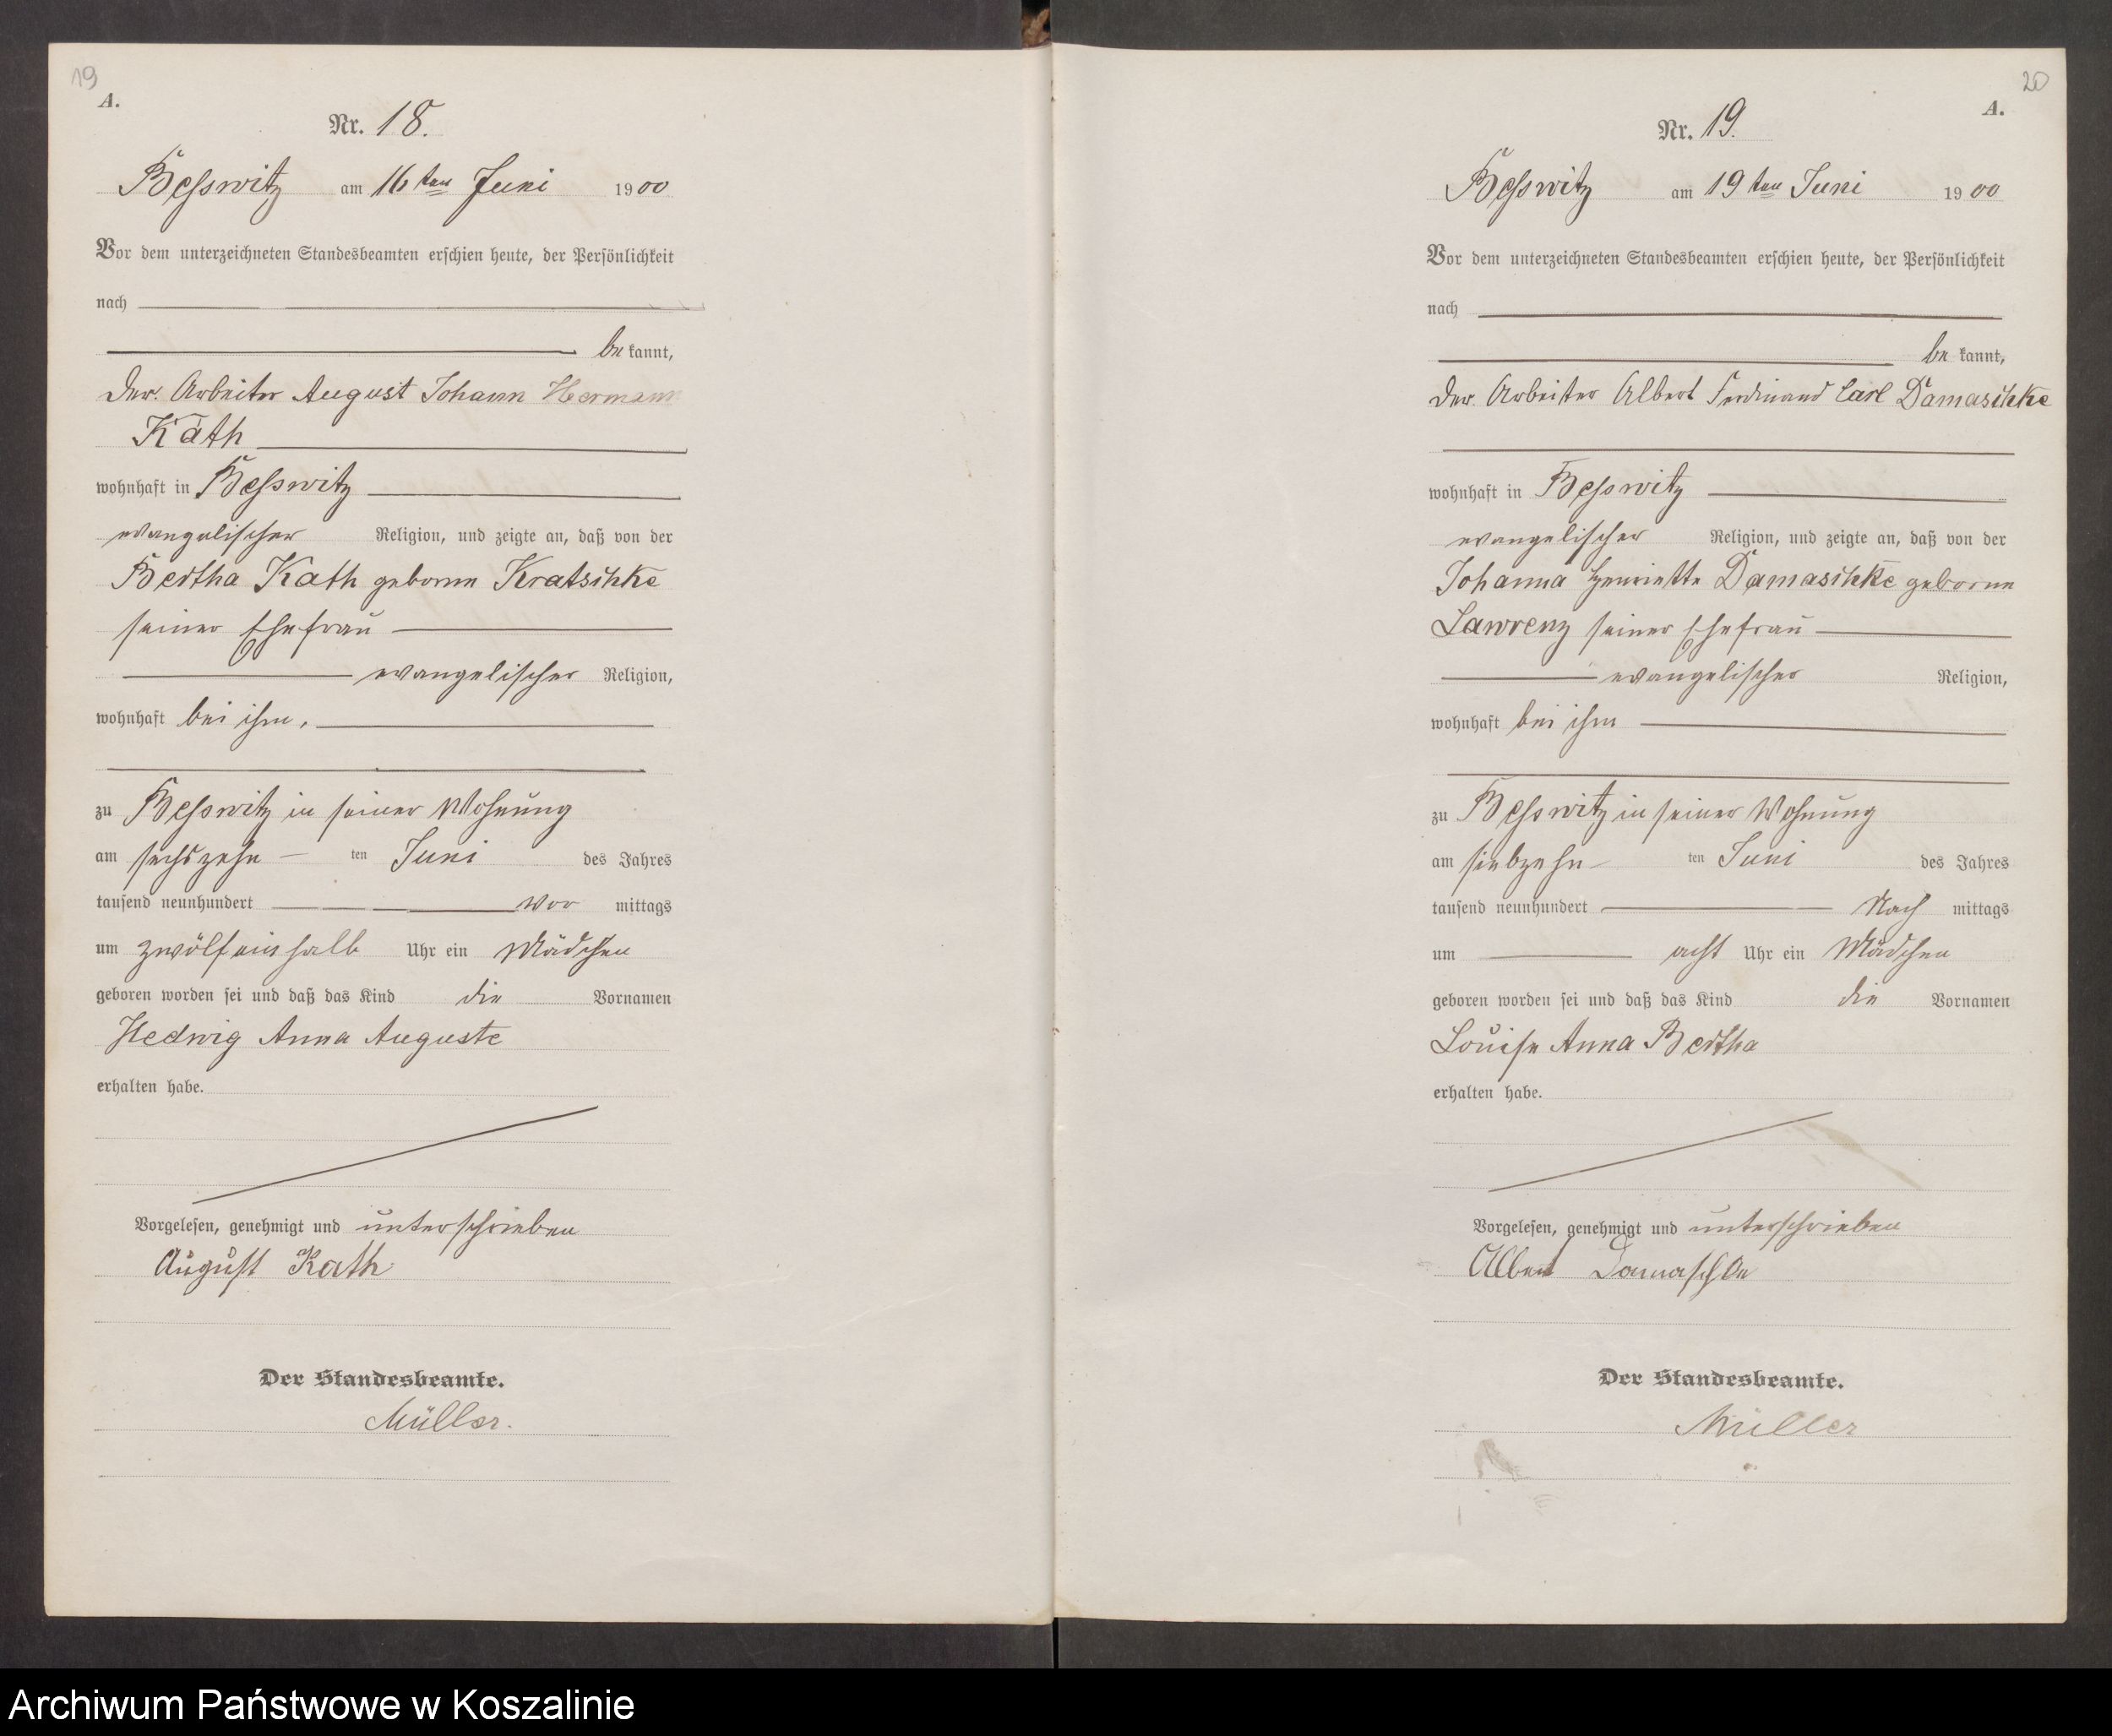 19
A.
Nr. 18.
Besswitz am 16ten Juni 1900
Vor dem unterzeichneten Standesbeamten erschien heute, der Persönlichkeit
nach
bekannt,
der Arbeiter August Johann Hermann
Kath
wohnhaft in Besswitz
evangelischer Religion, und zeigte an, daß von der
Bertha Kath geborne Kratschke
seiner Ehefrau
evangelischer Religion,
wohnhaft bei ihm,
zu Besswitz in seiner Wohnung
am sechszehn ten Juni des Jahres
tausend neunhundert Vor mittags
um zwölfeinhalb Uhr ein Mädchen
geboren worden sei und daß das Kind die Vornamen
Hedwig Anna Auguste
erhalten habe.
Vorgelesen, genehmigt und unterschrieben
August Kath
Der Standesbeamte.
Müller.
20
A.
Nr. 19.
Besswitz am 19ten Juni 1900
Vor dem unterzeichneten Standesbeamten erschien heute, der Persönlichkeit
nach
bekannt,
der Arbeiter Albert Ferdinand Carl Damaschke
wohnhaft in Besswitz
evangelischer Religion, und zeigte an, daß von der
Johanna Henriette Damaschke geborne
Lawrenz seiner Ehefrau
evangelischer Religion,
wohnhaft bei ihm
zu Besswitz in seiner Wohnung
am siebzehn ten Juni des Jahres
tausend neunhundert Nach mittags
um acht Uhr ein Mädchen
geboren worden sei und daß das Kind die Vornamen
Louise Anna Bertha
erhalten habe.
Vorgelesen, genehmigt und unterschrieben
Albert Damaschke
Der Standesbeamte.
Müller
Archiwum Państwowe w Koszalinie